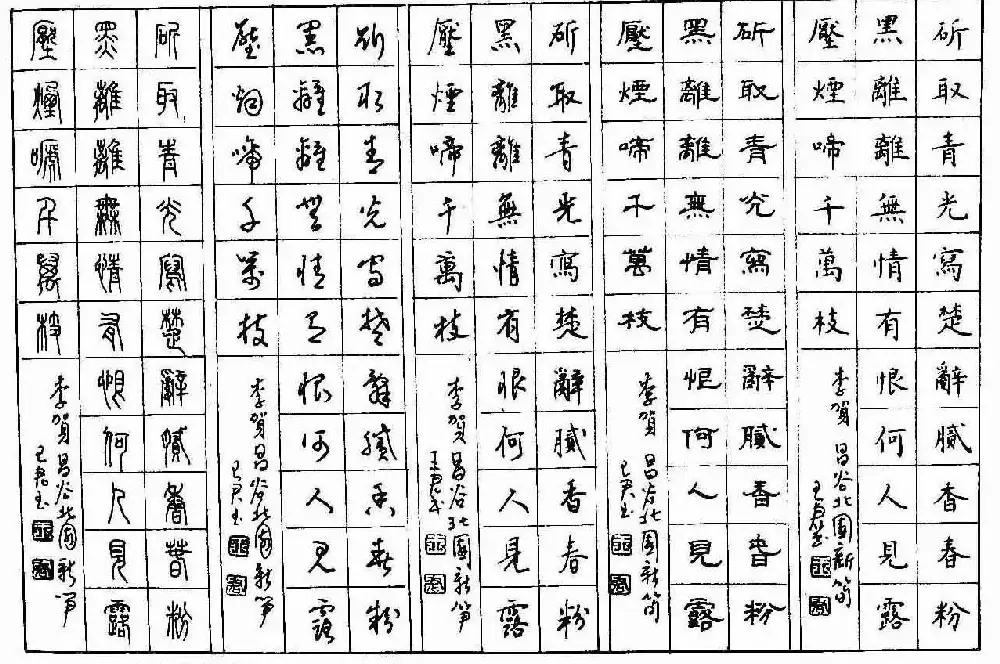 斫取青光寫楚辭膩香春粉
黑離離無情有恨何人見露
壓煙啼千萬枝 李賀 昌谷北園新筍
斫取青光寫楚辭膩香春粉
黑離離無情有恨何人見露
壓煙啼千萬枝 李賀 昌谷北園新筍
斫取青光寫楚辭膩香春粉
黑離離無情有恨何人見露
壓煙啼千萬枝 李賀 昌谷北園新笋
斫取青光寫楚辭膩香春粉
黑離離無情有恨何人見露
壓煙啼千萬枝 李賀 昌谷北園新笋
斫取青光寫楚辭膩香春粉
黑離離無情有恨何人見露
壓煙啼千萬枝 李賀 昌谷北園新笋